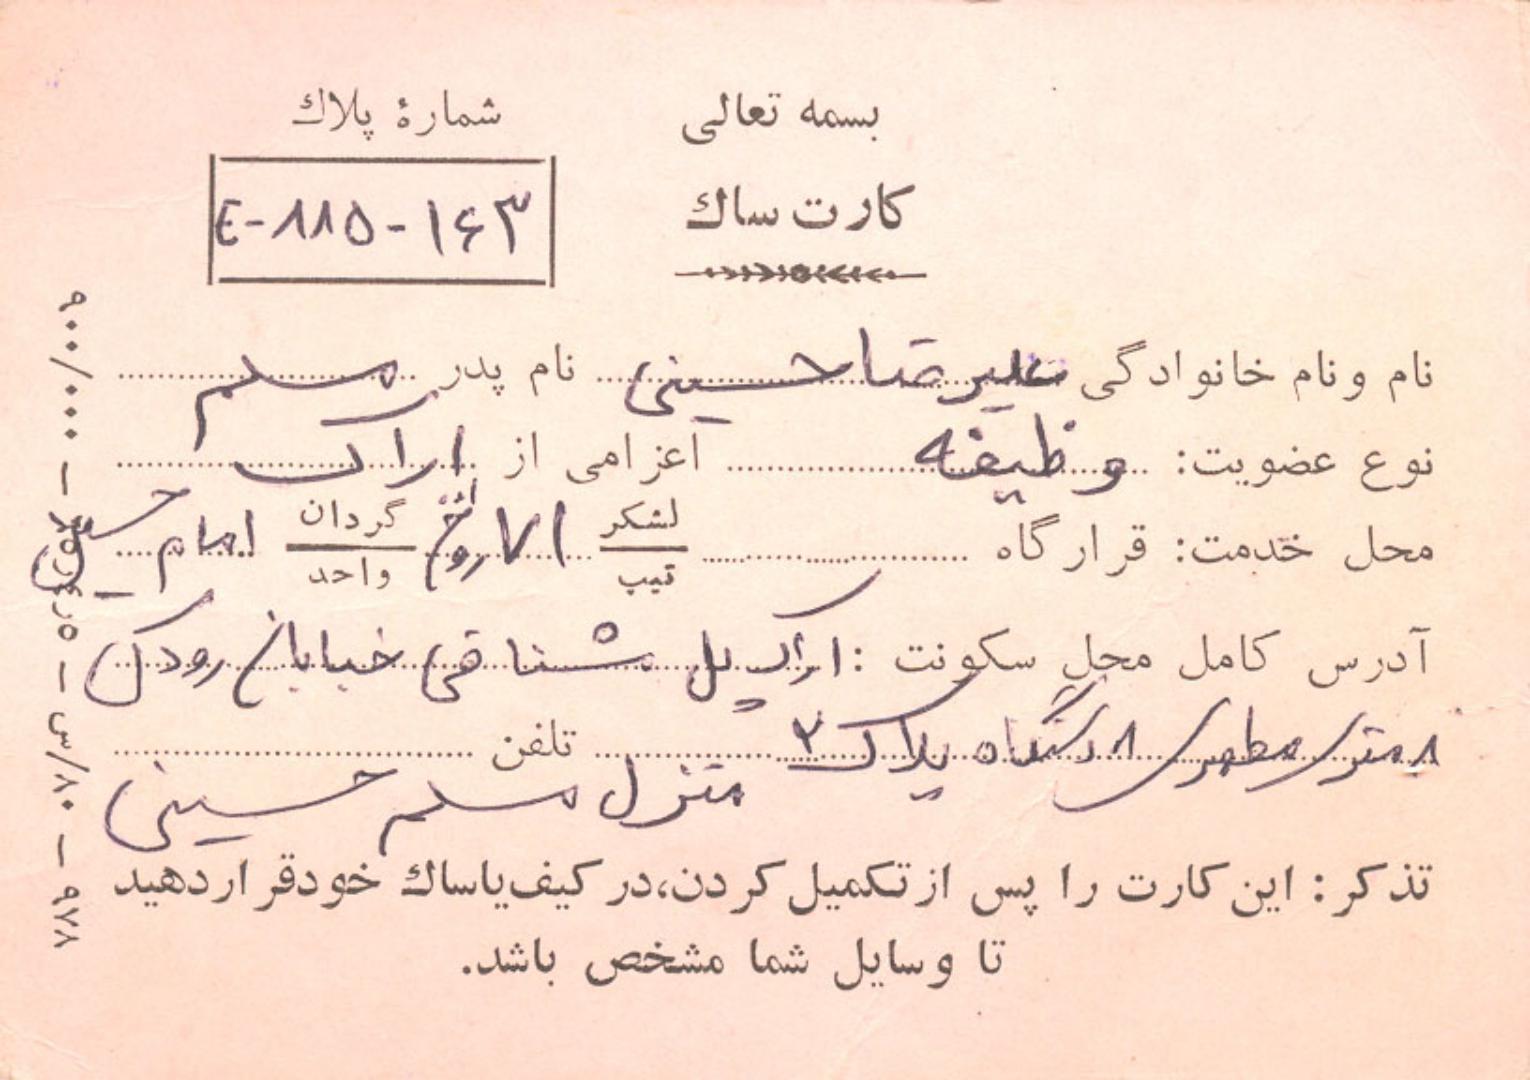 بسمه تعالی
شمارهٔ پلاك
کارت ساك
E-۸۸۵-۱۶۳
نام و نام خانوادگی علیرضا حسینی نام پدر مسلم
نوع عضویت: وظیفه اعزامی از اراک
محل خدمت: قرارگاه لشکر تیپ ۷۱ روح گردان واحد امام حسین
آدرس کامل محل سکونت: اراک پل خیابان رودکی
۸ متری مطهری ۸ دستگاه پلاک ۲ تلفن
منزل مسلم حسینی
تذکر: این کارت را پس از تکمیل کردن، در کیف یا ساك خود قرار دهید
تا وسایل شما مشخص باشد.